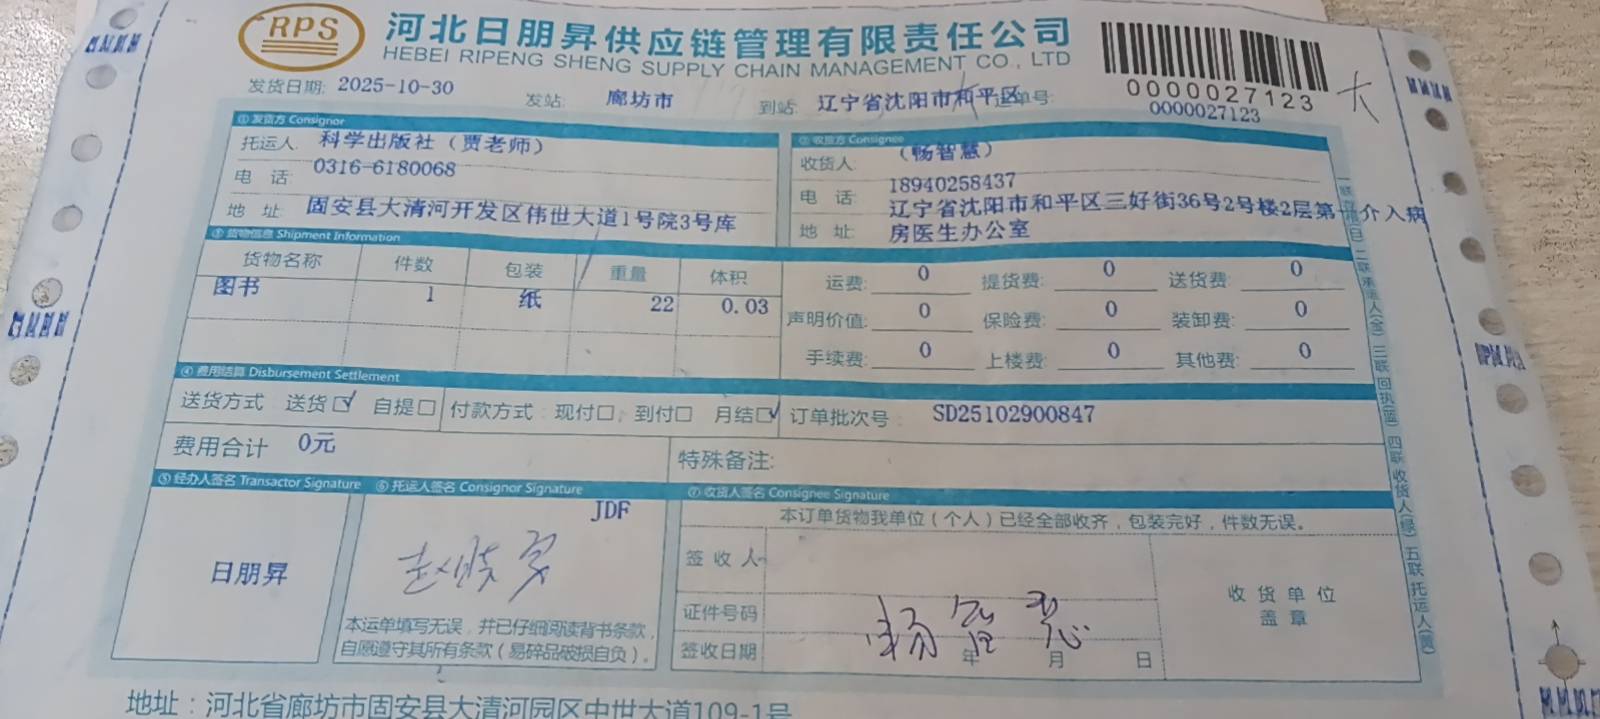 RPS
河北日朋昇供应链管理有限责任公司
HEBEI RIPENG SHENG SUPPLY CHAIN MANAGEMENT CO., LTD
0000027123
大
发货日期: 2025-10-30 发站: 廊坊市 到站: 辽宁省沈阳市和平区 运单号: 0000027123
① 发货方 Consignor
托运人: 科学出版社（贾老师）
电 话: 0316-6180068
地 址: 固安县大清河开发区伟世大道1号院3号库
② 收货方 Consignee
收货人: （杨智慧）
电 话: 18940258437
地 址: 辽宁省沈阳市和平区三好街36号2号楼2层第一介入病
房医生办公室
③ 货物信息 Shipment Information
货物名称 件数 包装 重量 体积
图书 1 纸 22 0.03
运费: 0 提货费: 0 送货费: 0
声明价值: 0 保险费: 0 装卸费: 0
手续费: 0 上楼费: 0 其他费: 0
④ 费用结算 Disbursement Settlement
送货方式 送货☑ 自提□ 付款方式: 现付□ 到付□ 月结☑ 订单批次号 SD25102900847
费用合计 0元 特殊备注:
⑤ 经办人签名 Transactor Signature
日朋昇
⑥ 托运人签名 Consignor Signature
JDF
本运单填写无误，并已仔细阅读背书条款，
自愿遵守其所有条款（易碎品破损自负）。
⑦ 收货人签名 Consignee Signature
本订单货物我单位（个人）已经全部收齐，包装完好，件数无误。
签 收 人
证件号码
杨智慧
签收日期 年 月 日
收货单位
盖章
二联 承运人(金) 三联 回执(蓝) 四联 收货人(绿) 五联 托运人(黄)
地址：河北省廊坊市固安县大清河园区中世大道109-1号